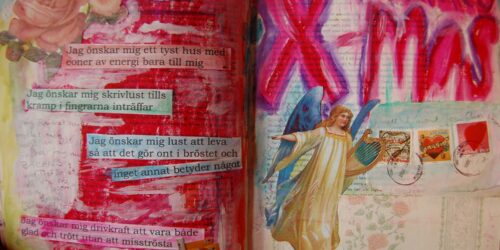 Jag önskar mig ett tyst hus med
eoner av energi bara till mig
Jag önskar mig skrivlust tills
kramp i fingrarna inträffar
Jag önskar mig lust att leva
så att det gör ont i bröstet och
inget annat betyder något
Jag önskar mig drivkraft att vara både
glad och trött utan att misströsta
X-MAS